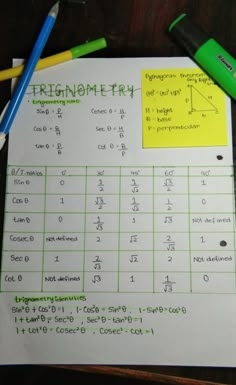 TRIGNOMETRY
trignometry ratios
Sin θ = P/H Cosec θ = H/P
Cos θ = B/H Sec θ = H/B
tan θ = P/B Cot θ = B/P
Pythagorean Theorem
H = height
B = base
P = perpendicular
θ/T.ratios 0° 30° 45° 60° 90°
Sin θ 0 1/2 1/√2 √3/2 1
Cos θ 1 √3/2 1/√2 1/2 0
tan θ 0 1/√3 1 √3 Not defined
Cosec θ Not defined 2 √2 2/√3 1
Sec θ 1 2/√3 √2 2 Not defined
Cot θ Not defined √3 1 1/√3 0
trignometry identities
Sin²θ + Cos²θ = 1 , 1-Cos²θ = Sin²θ , 1-Sin²θ = Cos²θ
1 + tan²θ = Sec²θ , Sec²θ - tan²θ = 1
1 + Cot²θ = Cosec²θ , Cosec² - Cot = 1